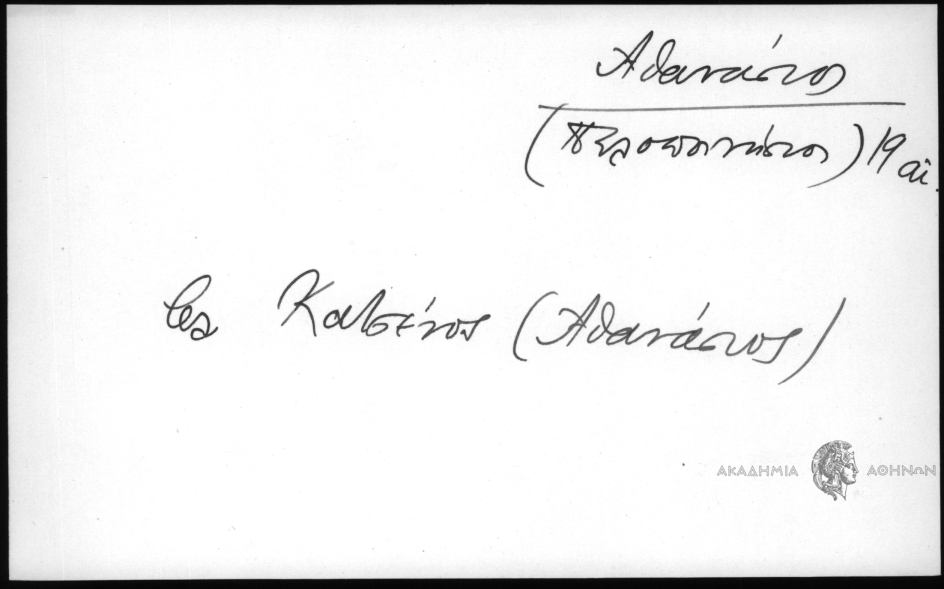 Αθανάσιος
(Πελοποννήσιος) 19 αι.
βλ Κατσένος (Αθανάσιος)
ΑΚΑΔΗΜΙΑ ΑΘΗΝΩΝ